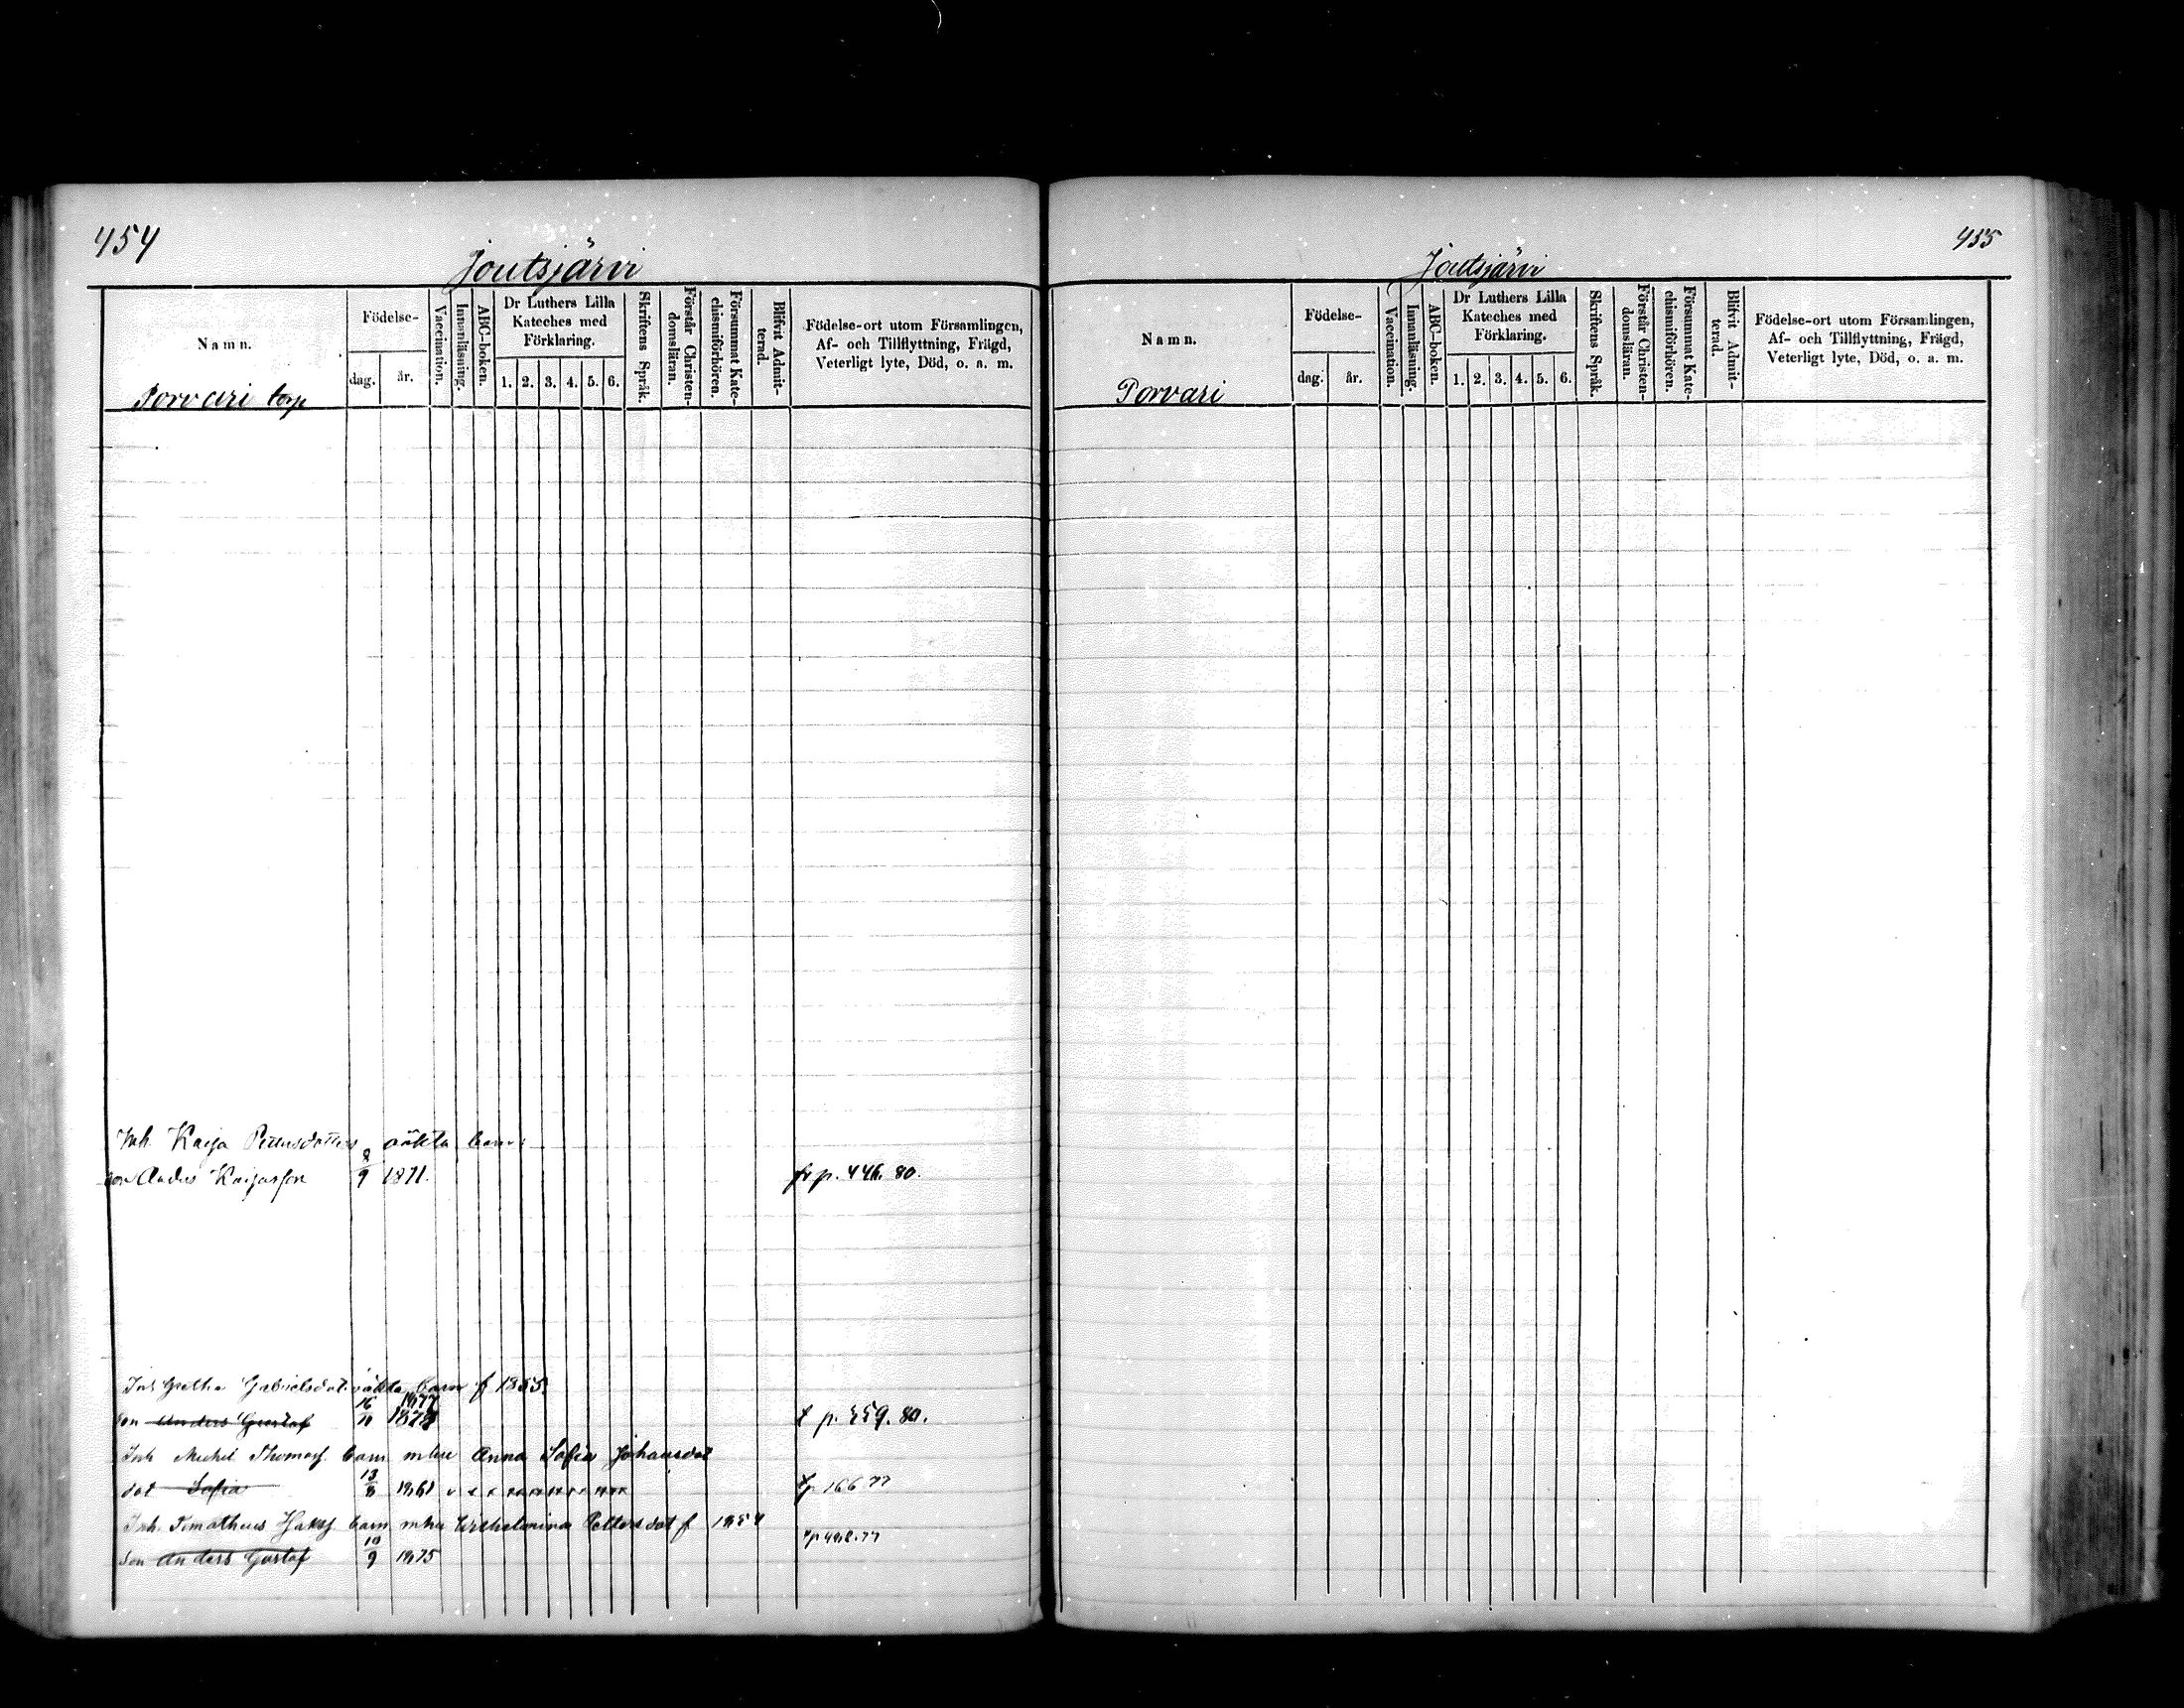 454
Joutsjärvi
Namn.
Födelse-
dag.
år.
Vaccination.
Innanläsning.
ABC-boken.
Dr Luthers Lilla
Kateches med
Förklaring.
1. 2. 3. 4. 5. 6.
Skriftens Språk.
Förstår Christen-
domsläran.
Försummat Kate-
chismiförhören.
Blifvit Admit-
terad.
Födelse-ort utom Församlingen,
Af- och Tillflyttning, Frägd,
Veterligt lyte, Död, o. a. m.
Porvari torp
Inh. Kaija Pettersdotters oäkta barn:
son Anders Kaijasson 8/9 1871. fr p. 446. 80.
Inh Gretha Gabrielsdot. oäkta barn f 1855.
1877
son Anders Gustaf 16/11 1878 t p. 459. 80.
Inh Michel Thomass. barn mhu Anna Sofia Johansdot
dot Sofia 13/8 1861 tp 166 77
Inh. Timotheus barn mhu Wilhelmina Pettersdot f 1854
son Anders Gustaf 10/9 1875
455
Joutsjärvi
Namn.
Födelse-
dag.
år.
Vaccination.
Innanläsning.
ABC-boken.
Dr Luthers Lilla
Kateches med
Förklaring.
1. 2. 3. 4. 5. 6.
Skriftens Språk.
Förstår Christen-
domsläran.
Försummat Kate-
chismiförhören.
Blifvit Admit-
terad.
Födelse-ort utom Församlingen,
Af- och Tillflyttning, Frägd,
Veterligt lyte, Död, o. a. m.
Porvari